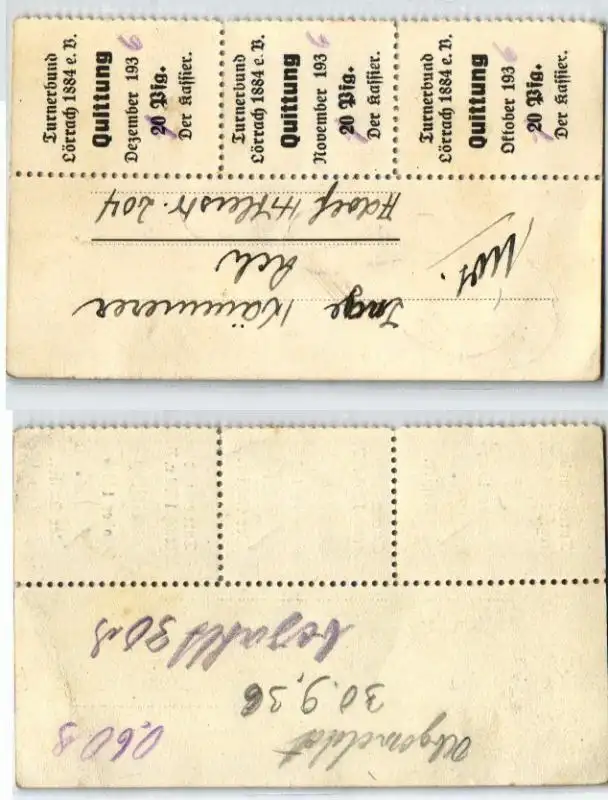 Turnerbund
Lörrach 1884 e.V.
Quittung
Dezember 1936
20 Pfg.
Der Kassier.
Turnerbund
Lörrach 1884 e.V.
Quittung
November 1936
20 Pfg.
Der Kassier.
Turnerbund
Lörrach 1884 e.V.
Quittung
Oktober 1936
20 Pfg.
Der Kassier.
Inge Kämmerer
Adolf Hitlerstr. 204
Abgemeldet
30.9.36
bezahlt
0,60